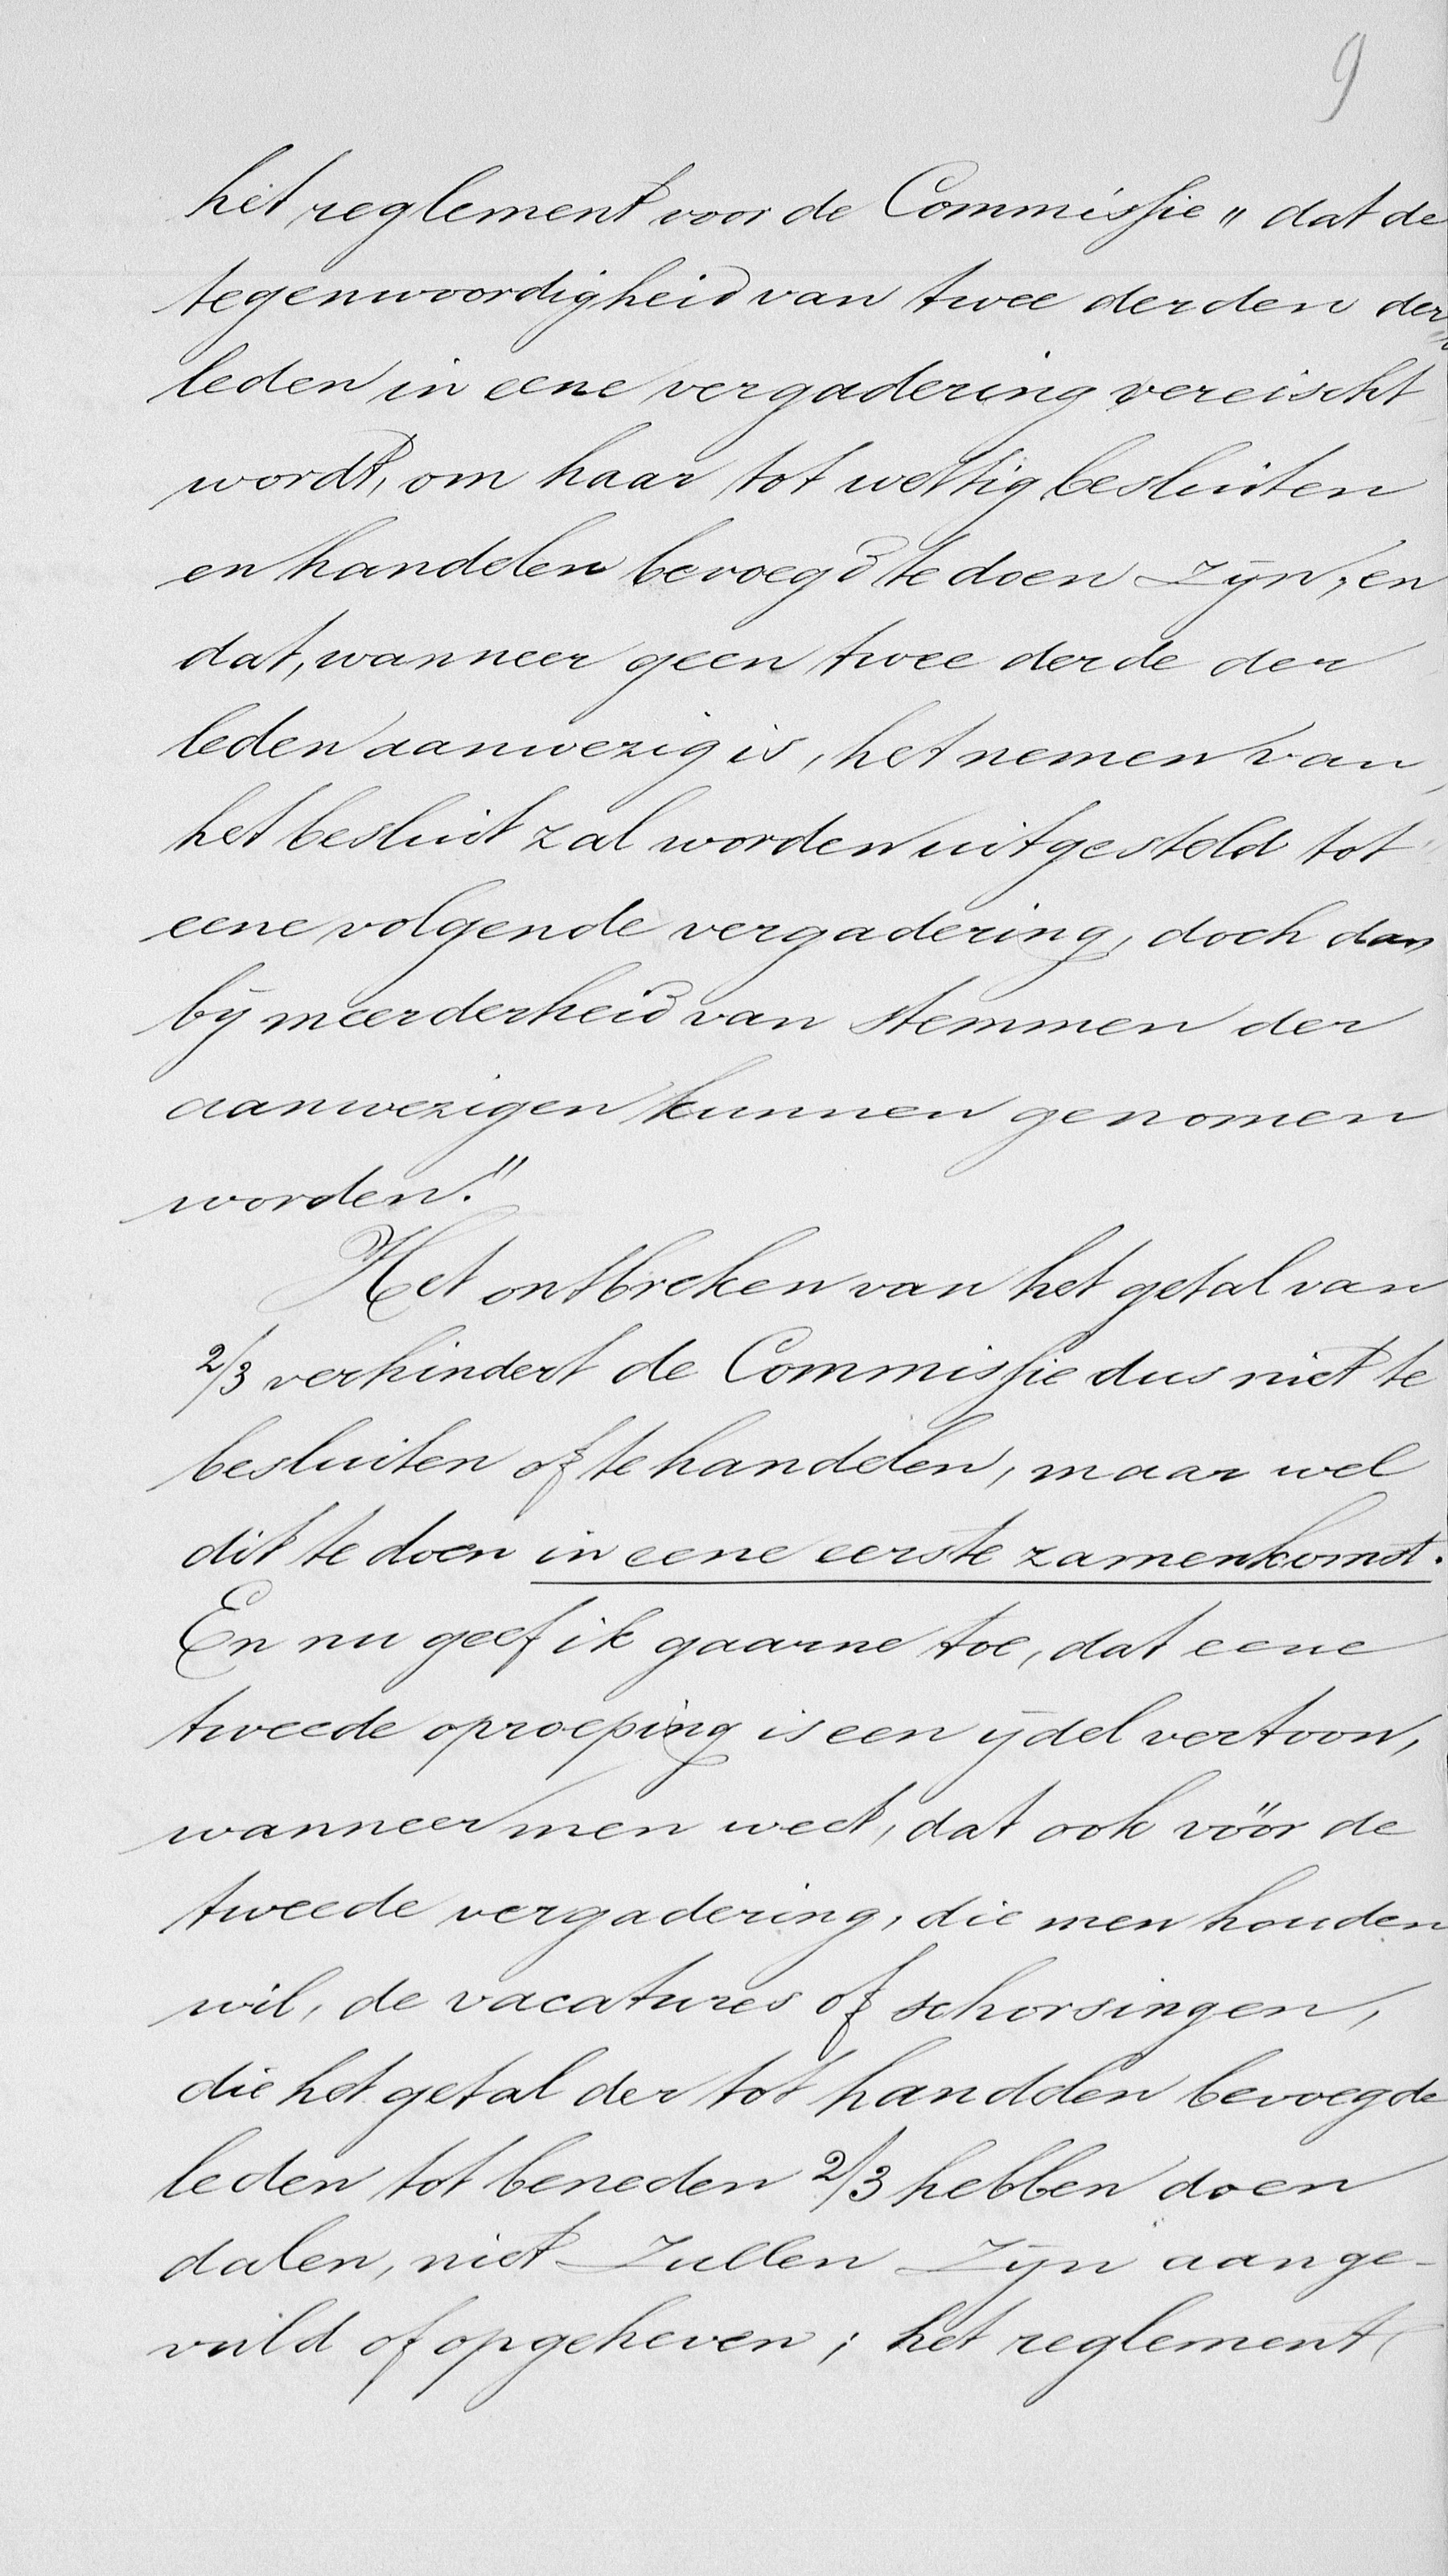 9
het reglement voor de Commissie „ dat de
tegenwoordigheid van twee derden der
leden in eene vergadering vereischt
wordt, om haar tot wettig besluiten
en handelen bevoegd te doen zijn, en
dat, wanneer geen twee derde der
leden aanwezig is, het nemen van
het besluit zal worden uitgesteld tot
eene volgende vergadering, doch dan
bij meerderheid van stemmen der
aanwezigen kunnen genomen
worden."
Het ontbreken van het getal van
2/3 verhindert de Commissie dus niet te
besluiten of te handelen, maar wel
dit te doen in eene eerste zamenkomst.
En nu geef ik gaarne toe, dat eene
tweede oproeping is een ijdel vertoon,
wanneer men weet, dat ook vöör de
tweede vergadering, die men houden
wil, de vacatures of schorsingen,
die het getal der tot handelen bevoegde
leden tot beneden 2/3 hebben doen
dalen, niet zullen zijn aange-
vuld of opgeheven; het reglement